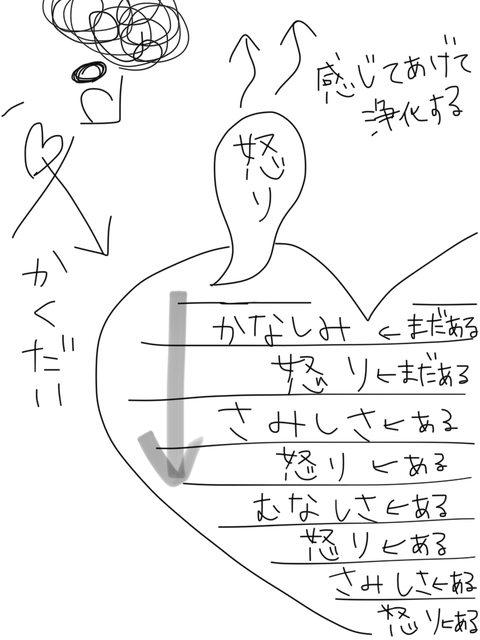 感じてあげて
浄化する
怒り
かくだい!!
かなしみ ← まだある
怒り ← まだある
さみしさ ← ある
怒り ← ある
むなしさ ← ある
怒り ← ある
さみしさ ← ある
怒り ← ある